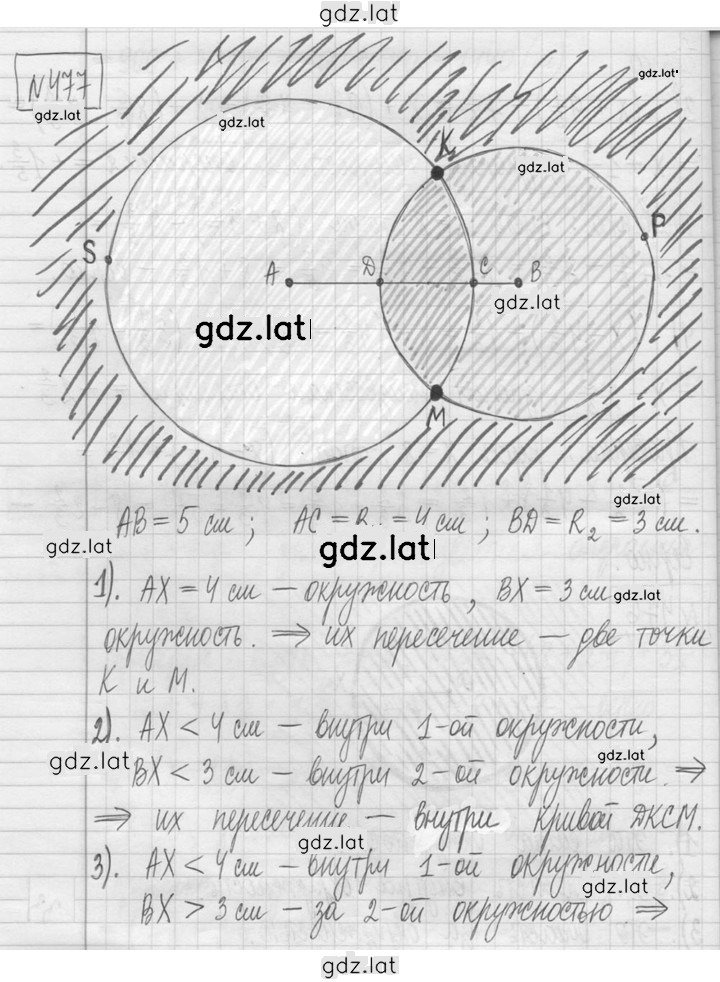 gdz.lat
N477
gdz.lat
gdz.lat
gdz.lat
K
gdz.lat
P
S
A
D
C
B
gdz.lat
gdz.lat
M
gdz.lat
AB = 5 см ; AC = R = 4 см ; BD = R₂ = 3 см.
gdz.lat
gdz.lat
1). AX = 4 см – окружность, BX = 3 см gdz.lat
окружность. ⇒ их пересечение – две точки
K и M.
2). AX < 4 см – внутри 1-ой окружности,
gdz.lat
gdz.lat
BX < 3 см – внутри 2-ой окружности. ⇒
⇒ их пересечение – внутри кривой ДКСМ.
gdz.lat
3). AX < 4 см – внутри 1-ой окружности,
gdz.lat
BX > 3 см – за 2-ой окружностью ⇒
gdz.lat